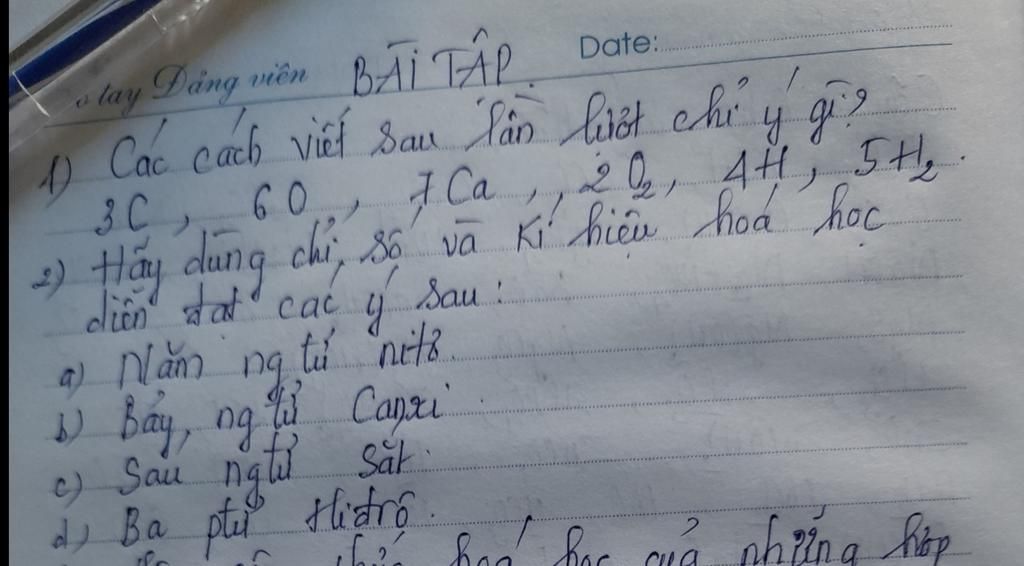 ổ tay Đảng viên BÀI TẬP Date:
1) Các cách viết sau lần lượt chỉ ý gì?
3C, 6O, 7Ca, 2O₂, 4H, 5H₂.
2) Hãy dùng chỉ số và kí hiệu hoá học
diễn đạt các ý sau:
a) Năm ng tử nitơ.
b) Bảy, ng tử Canxi
c) Sau ngtử sắt.
d) Ba ptử Hiđrô.
hoá học của những hợp